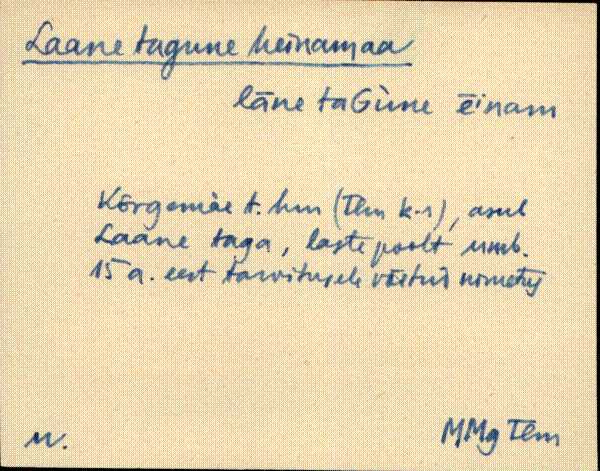 Laane tagune heinamaa
lāne taGùne ēinam
Kõrgemäe t. hm (Tlm k-s), asub
Laane taga, laste poolt umb.
15 a. eest tarvitusele võetud nimetus
M.
MMg Tlm